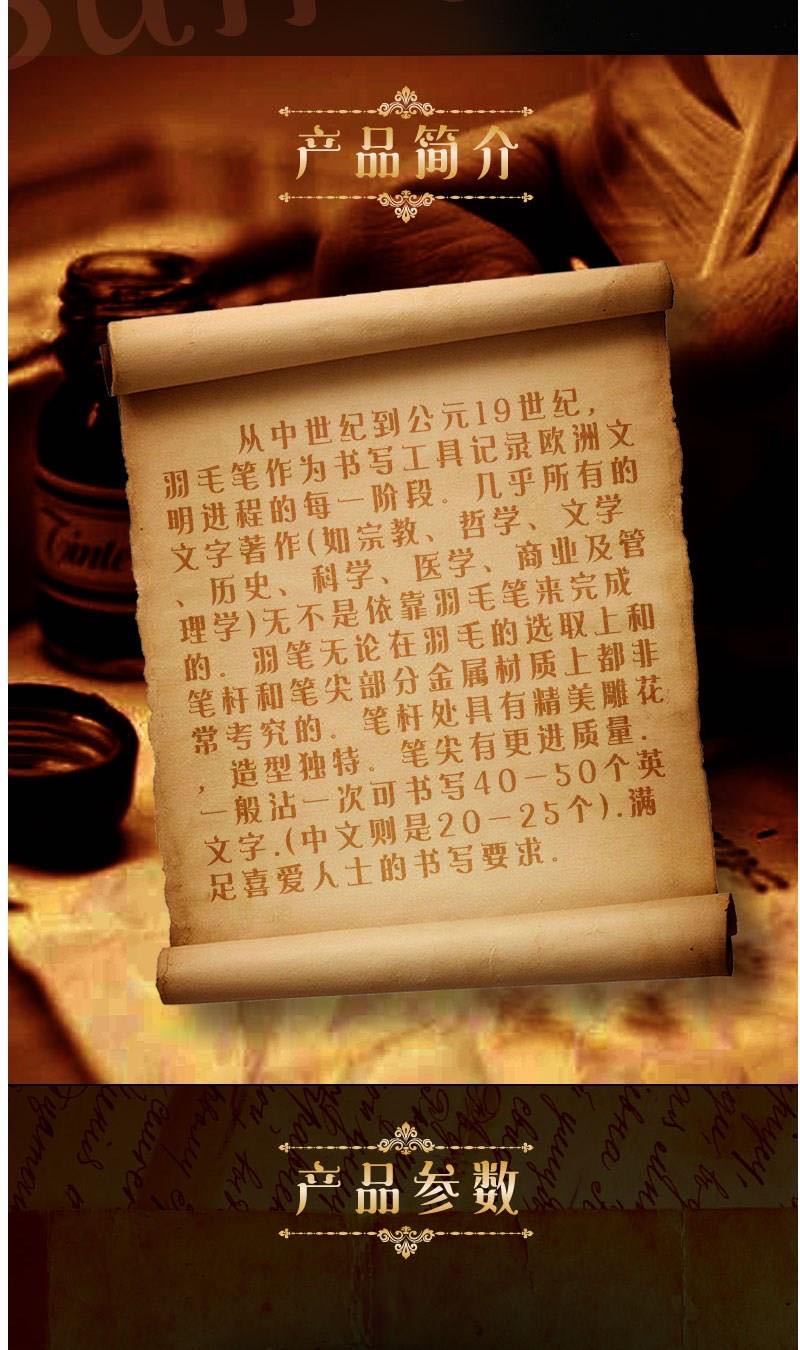 产品简介
从中世纪到公元19世纪，
羽毛笔作为书写工具记录欧洲文
明进程的每一阶段。几乎所有的
文字著作(如宗教、哲学、文学
、历史、科学、医学、商业及管
理学)无不是依靠羽毛笔来完成
的。羽笔无论在羽毛的选取上和
笔杆和笔尖部分金属材质上都非
常考究的。笔杆处具有精美雕花
，造型独特。笔尖有更进质量.
一般沾一次可书写40－50个英
文字.(中文则是20－25个).满
足喜爱人士的书写要求。
产品参数